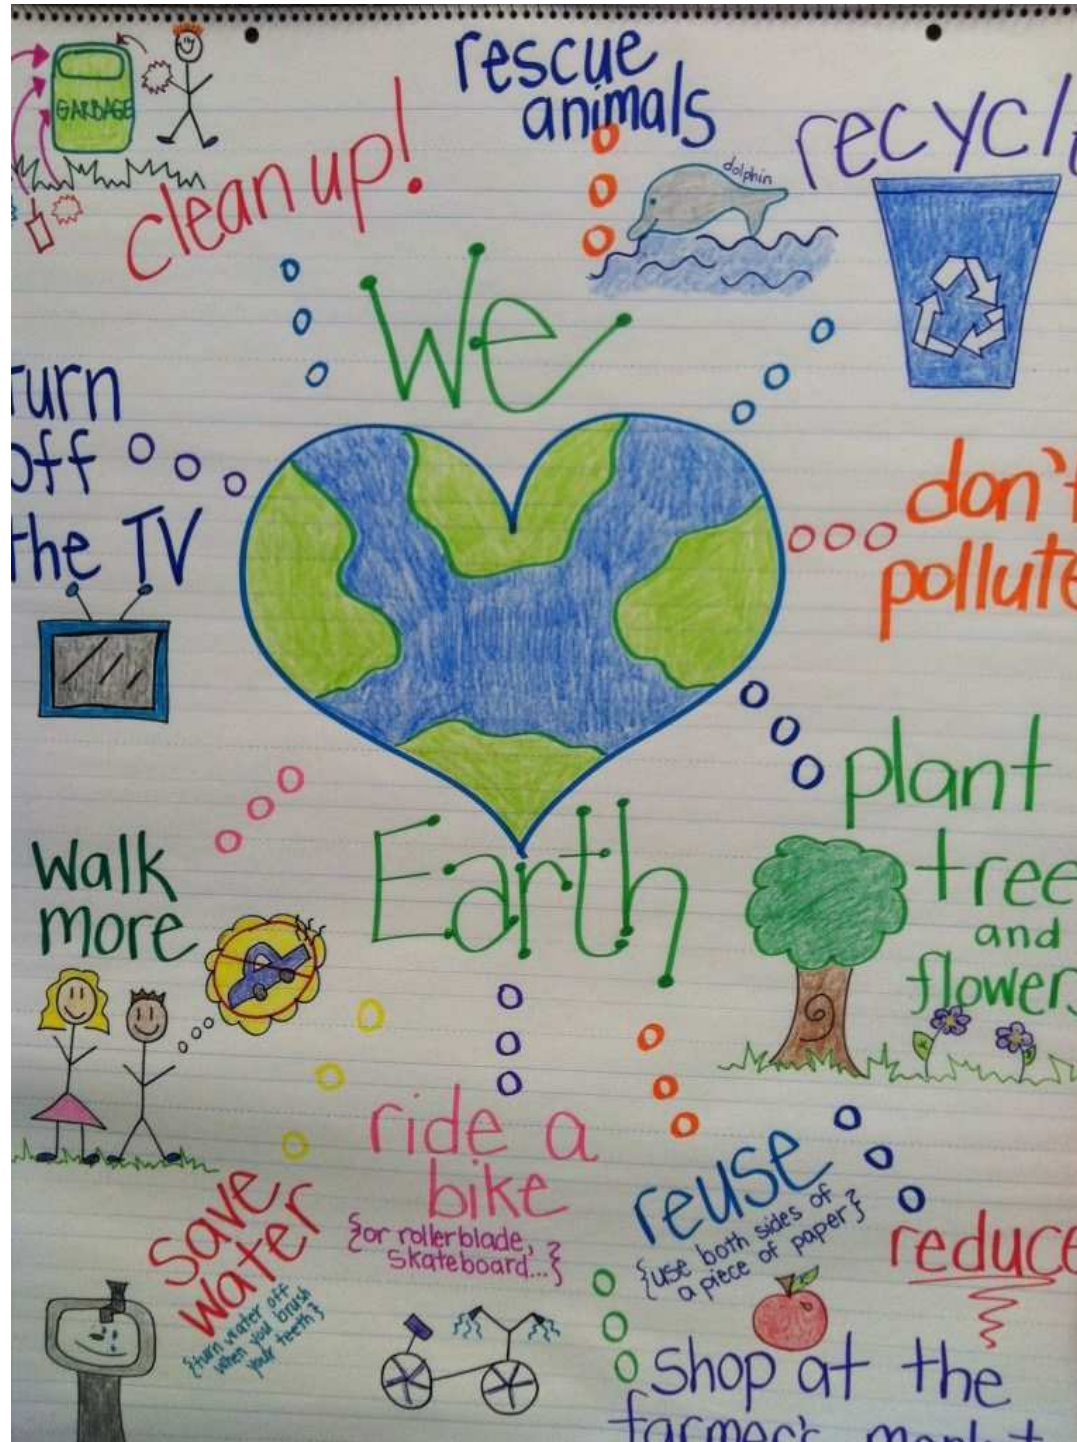 GARBAGE
clean up!
rescue
animals
dolphin
recycle
We
turn
off
the TV
don't
pollute
plant
tree
and
flowers
Walk
more
Earth
ride a
bike
{or rollerblade,
skateboard...}
Save
water
{turn water off
when you brush
your teeth}
reuse
{use both sides of
a piece of paper}
reduce
shop at the
farmer's market